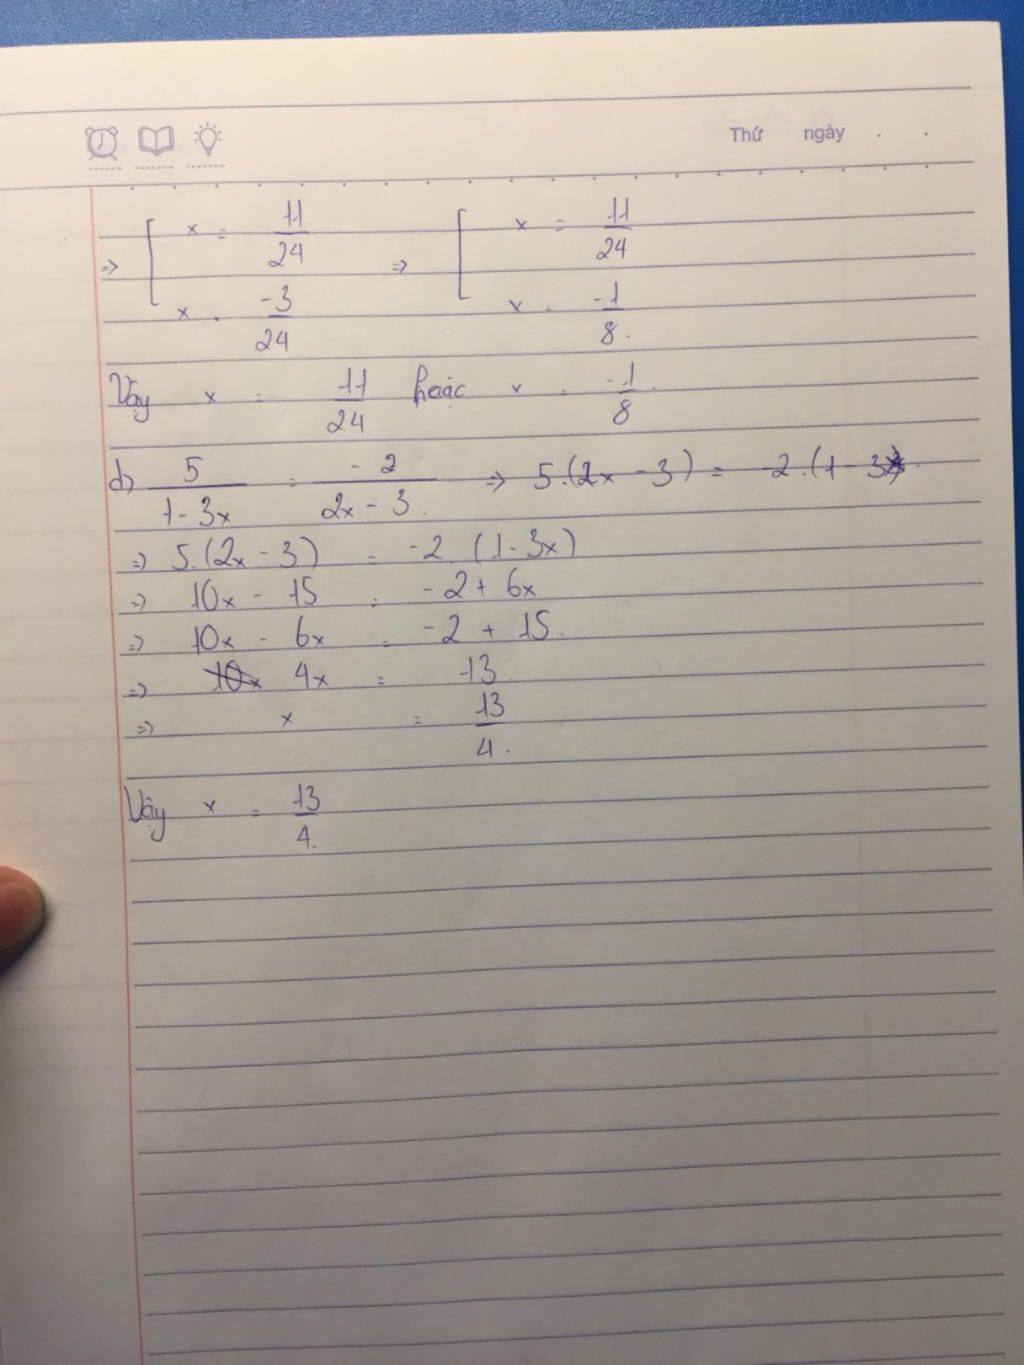 Thứ ngày . .
=> [ x = 11/24 => [ x = 11/24
x = -3/24 x = -1/8.
Vậy x = 11/24 hoặc x = -1/8.
d) 5/1-3x = -2/2x-3. => 5.(2x-3) = -2.(1-3x).
=> 5.(2x-3) = -2 (1-3x)
=> 10x - 15 = -2 + 6x
=> 10x - 6x = -2 + 15.
=> 4x = 13
=> x = 13/4.
Vậy x = 13/4.